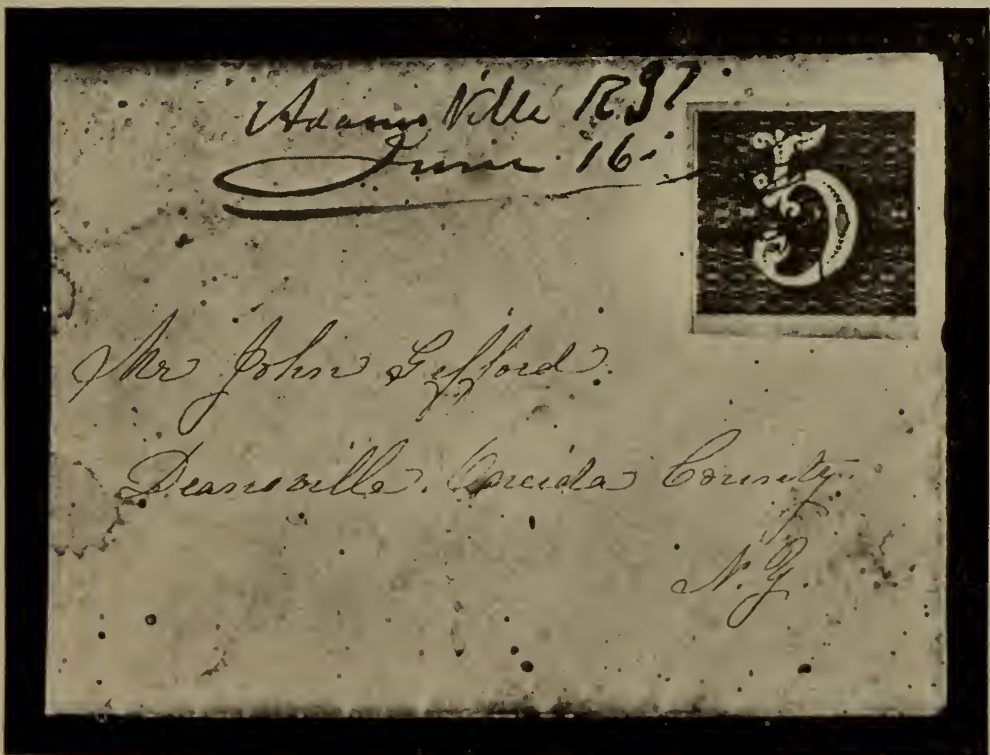 Adamsville R. I
June 16.
5
Mr John Gifford.
Deansville. Oneida County.
N. Y.